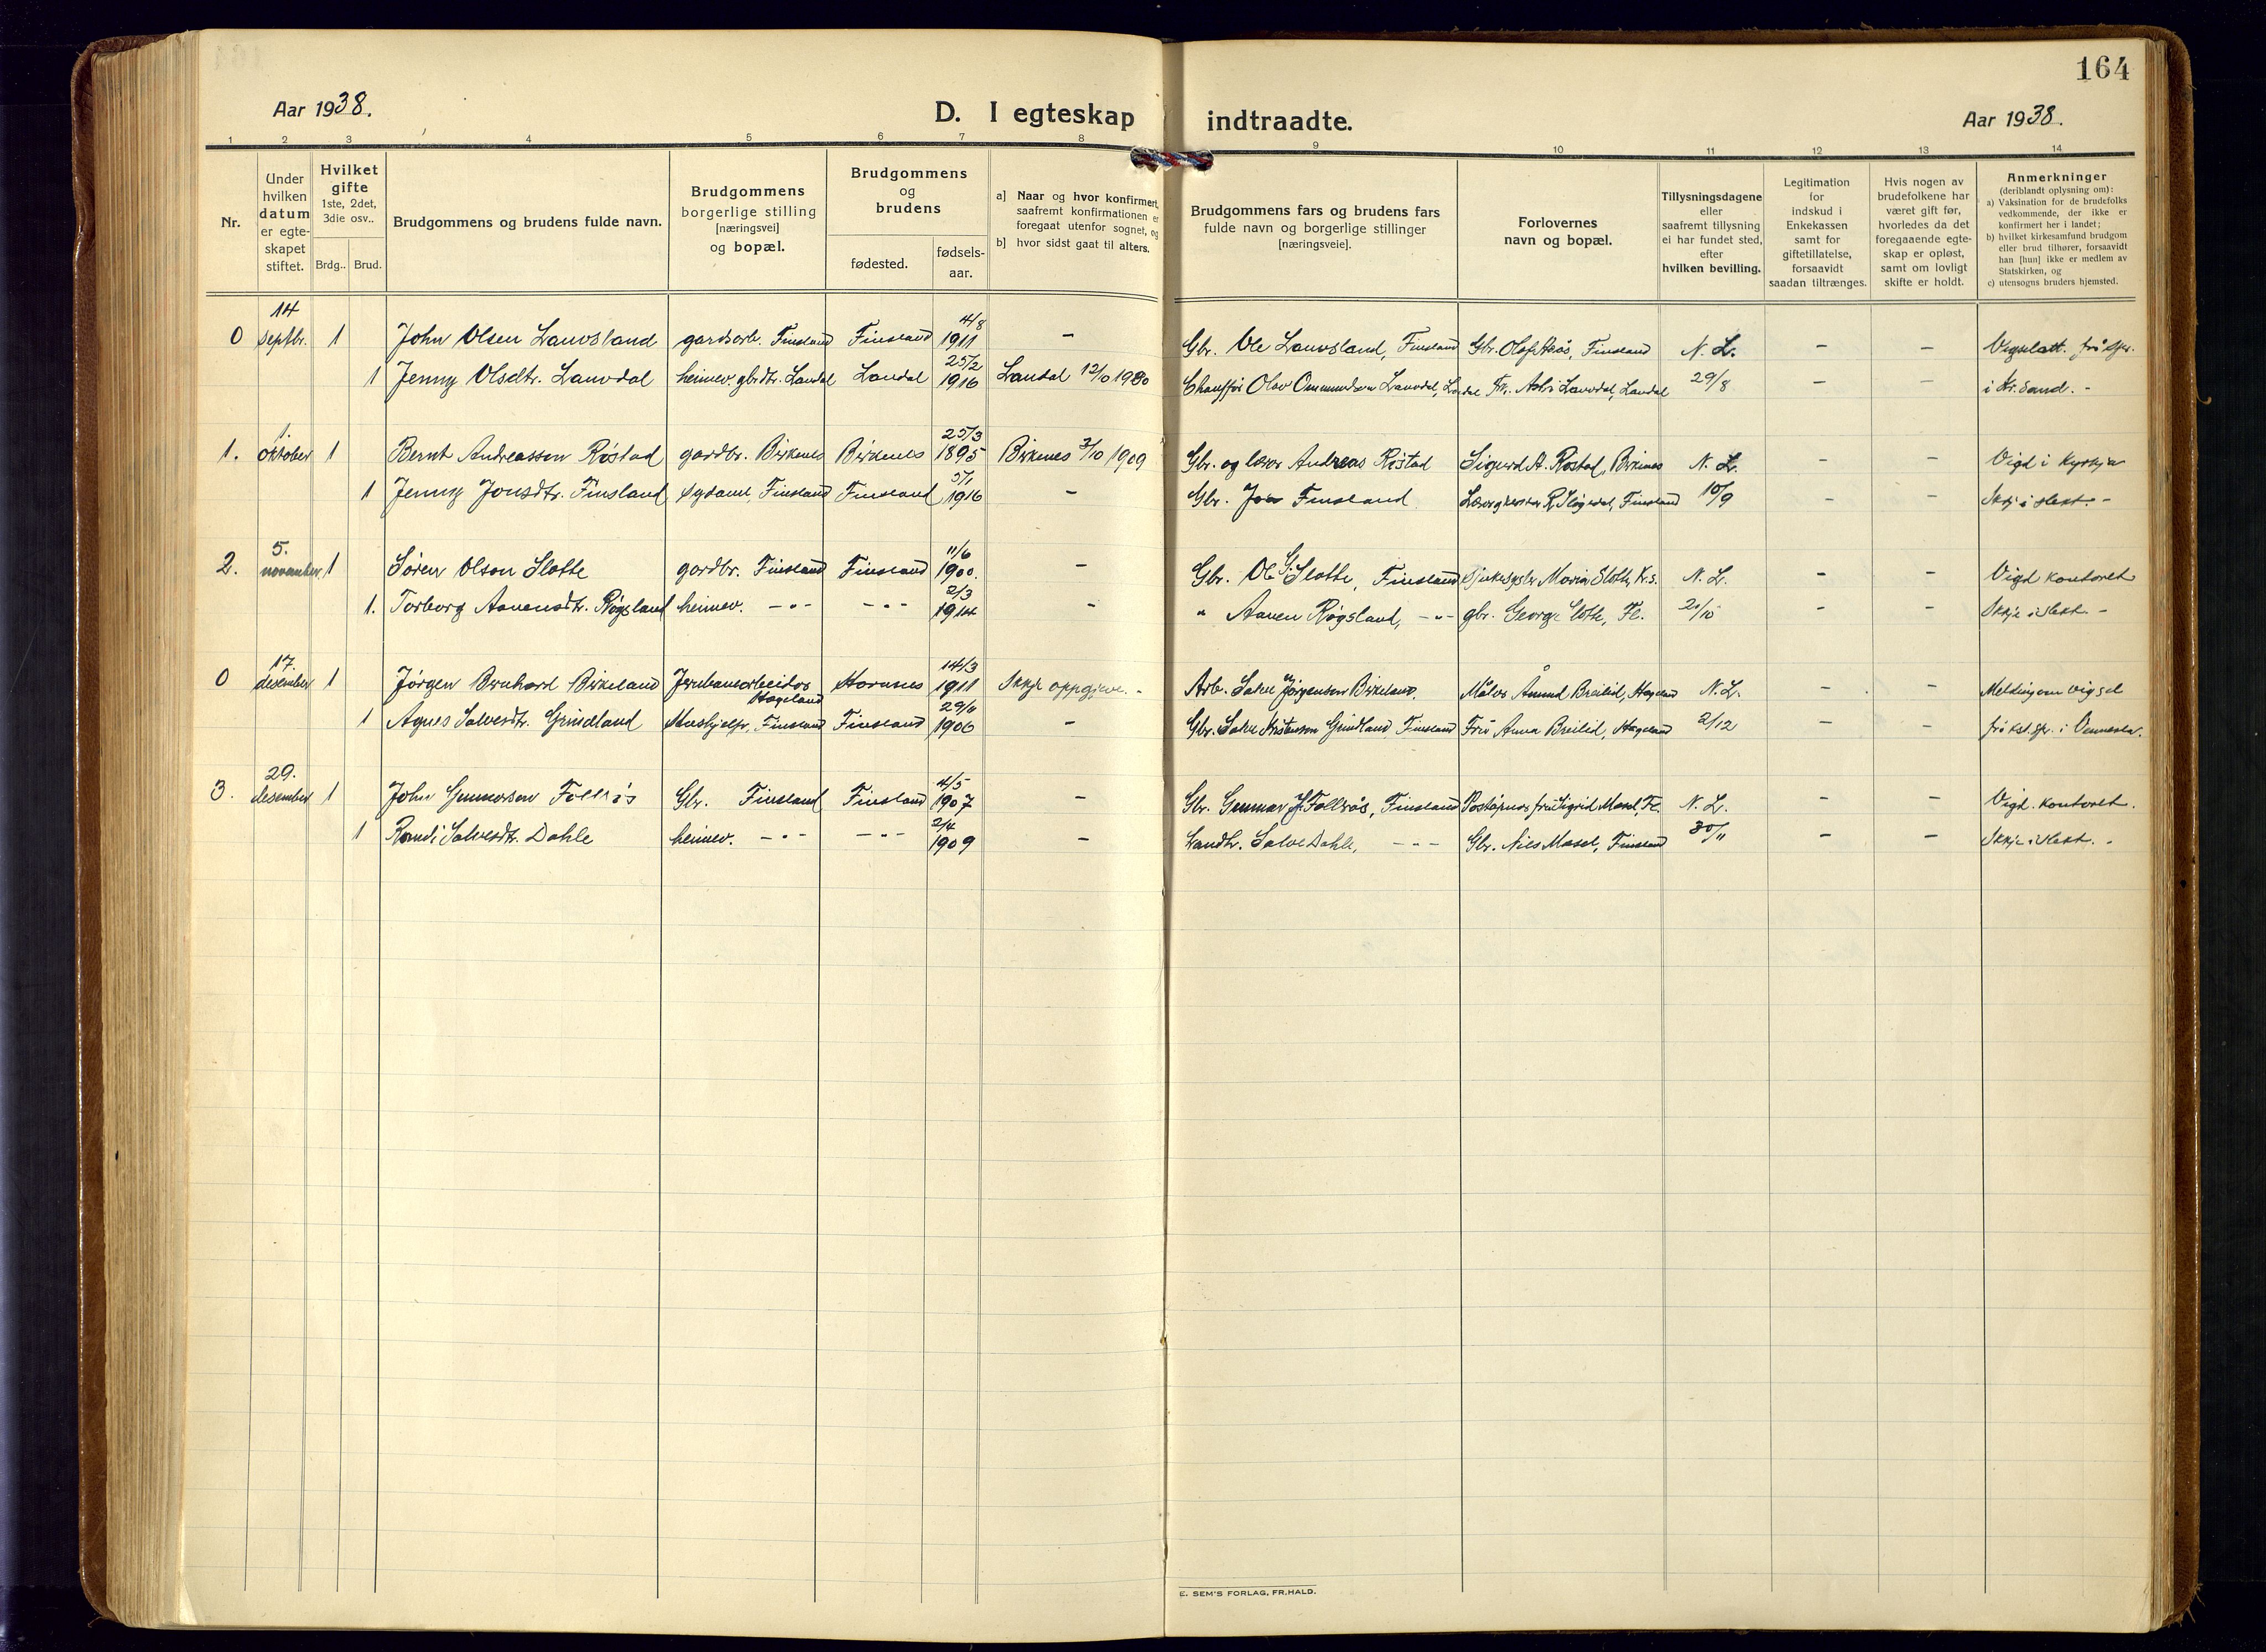 164
Aar 1938.
D. I egteskap indtraadte.
Aar 1938.
1 2 3 4 5 6 7 8 9 10 11 12 13 14
Nr.
Under
hvilken
datum
er egte-
skapet
stiftet.
Hvilket
gifte
1ste, 2det,
3die osv..
Brdg.. Brud.
Brudgommens og brudens fulde navn.
Brudgommens
borgerlige stilling
[næringsvei]
og bopæl.
Brudgommens
og
brudens
fødested.
fødsels-
aar.
a] Naar og hvor konfirmert,
saafremt konfirmationen er
foregaat utenfor sognet, og
b] hvor sidst gaat til alters.
Brudgommens fars og brudens fars
fulde navn og borgerlige stillinger
[næringsveie].
Forlovernes
navn og bopæl.
Tillysningsdagene
eller
saafremt tillysning
ei har fundet sted,
efter
hvilken bevilling.
Legitimation
for
indskud i
Enkekassen
samt for
giftetillatelse,
forsaavidt
saadan tiltrænges.
Hvis nogen av
brudefolkene har
været gift før,
hvorledes da det
foregaaende egte-
skap er opløst,
samt om lovligt
skifte er holdt.
Anmerkninger
(deriblandt oplysning om):
a) Vaksination for de brudefolks
vedkommende, der ikke er
konfirmert her i landet;
b) hvilket kirkesamfund brudgom
eller brud tilhører, forsaavidt
han [hun] ikke er medlem av
Statskirken, og
c) utensogns bruders hjemsted.
14 4/8
0 septbr. 1 John Olsen Lauvsland gardsarb. Finsland Finsland 1911 — Gbr. Ole Lauvsland, Finsland Gbr. Olaf Aaås, Finsland N. L. — — Vigselatt. frå spr.
25/2
1 Jenny Olsdtr. Lauvdal heimev. gbrdtr. Laudal Laudal 1916 Laudal 12/10 1930 Chauffør Olav Ommundsen Lauvdal, Laudal Frk. Astri Lauvdal, Laudal 29/8 — — i Kr.sand. -
1. 25/3
1. oktober 1 Bernt Andreassen Røstad gardbr. Birkenes Birkenes 1895 Birkenes 3/10 1909 Gbr. og lærer Andreas Røstad Sigurd A. Røstad, Birkenes N. L. — — Vigd i kyrkja
5/1
1 Jenny Jonsdtr. Finsland sydame, Finsland Finsland 1916 — Gbr. Jon Finsland Finsland 10/9 — — Skyj i slekt. -
5. 11/6
2. november 1 Søren Olson Slotte gardbr. Finsland Finsland 1900. — Gbr. Ole S. Slotte, Finsland Sjukesyster Maria Slotte, Kr.s. N. L. — — Vigd kontoret
2/3
1. Torborg Aanensdtr. Røgsland heimev. -"- -"- 1914 — " Aanen Røgsland, -"- gbr. Georg Slotte, Fl. 21/10 — — Skyje i slekt. -
17. 14/3
0 desember 1 Jørgen Bernhard Birkeland Jernbanearbeider Hægeland Hornnes 1911 Ikkje oppgjeve. - Arb. Salve Jørgenson Birkeland. Målar Åmund Breilid, Hægeland N. L. — — Melding om vigsel
29/6
1 Agnes Salvesdtr. Grindland Hushjelp, Finsland Finsland 1906 — Gbr. Salve Kristenson Grindland, Finsland Frú Anna Breilid, Hægeland 2/12 — — frå kst. spr. i Vennesla.
29. 4/5
3. desember 1 John Gunnarson Follrås Gbr. Finsland Finsland 1907 — Gbr. Gunnar J. Follrås, Finsland Postopnar frú Sigrid Masel, Fl. N. L. — — Vigd. kontoret.
2/4
1 Randi Salvesdtr. Dahle heimev. -"- -"- 1909 — Landh. Salve Dahle, -"- Gbr. Nils Masel, Finsland 30/11 — — Skyje i slekt. -
E. SEM'S FORLAG, FR.HALD.